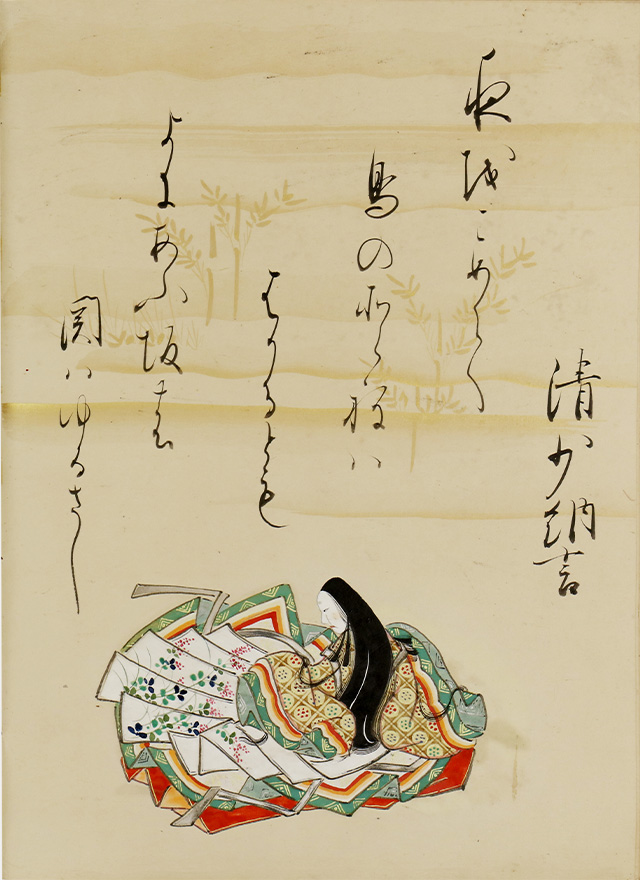 清少納言
夜をこめて
鳥のそらねハ
はかるとも
よにあふ坂の
関ハゆるさし